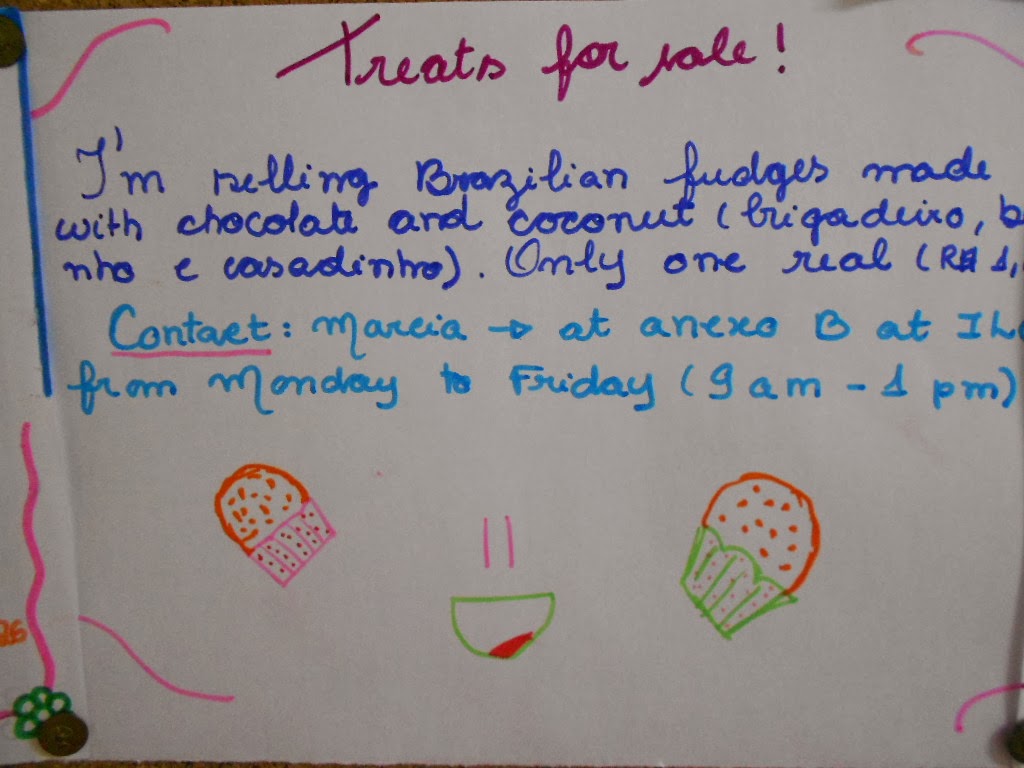 Treats for sale!
I'm selling Brazilian fudges made
with chocolate and coconut (brigadeiro, b
nho e casadinho). Only one real (R$ 1,
Contact: Marcia → at anexo B at IL
from Monday to Friday (9 am - 1 pm)
26